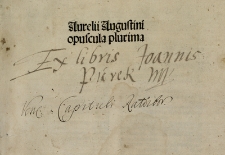 Aurelii Augustini
opuscula plurima
Ex libris Joannis
Pierek
Capituli Ratibor.